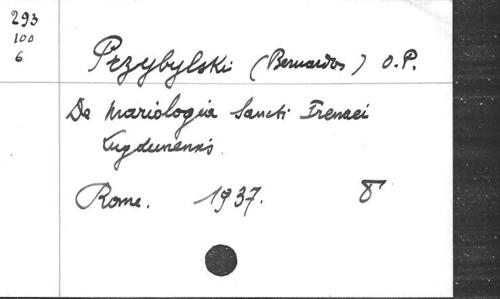 293
100
6
Przybylski (Bernardus) O.P.
De Mariologia Sancti Irenaei
Lugdunensis.
Rome. 1937. 8